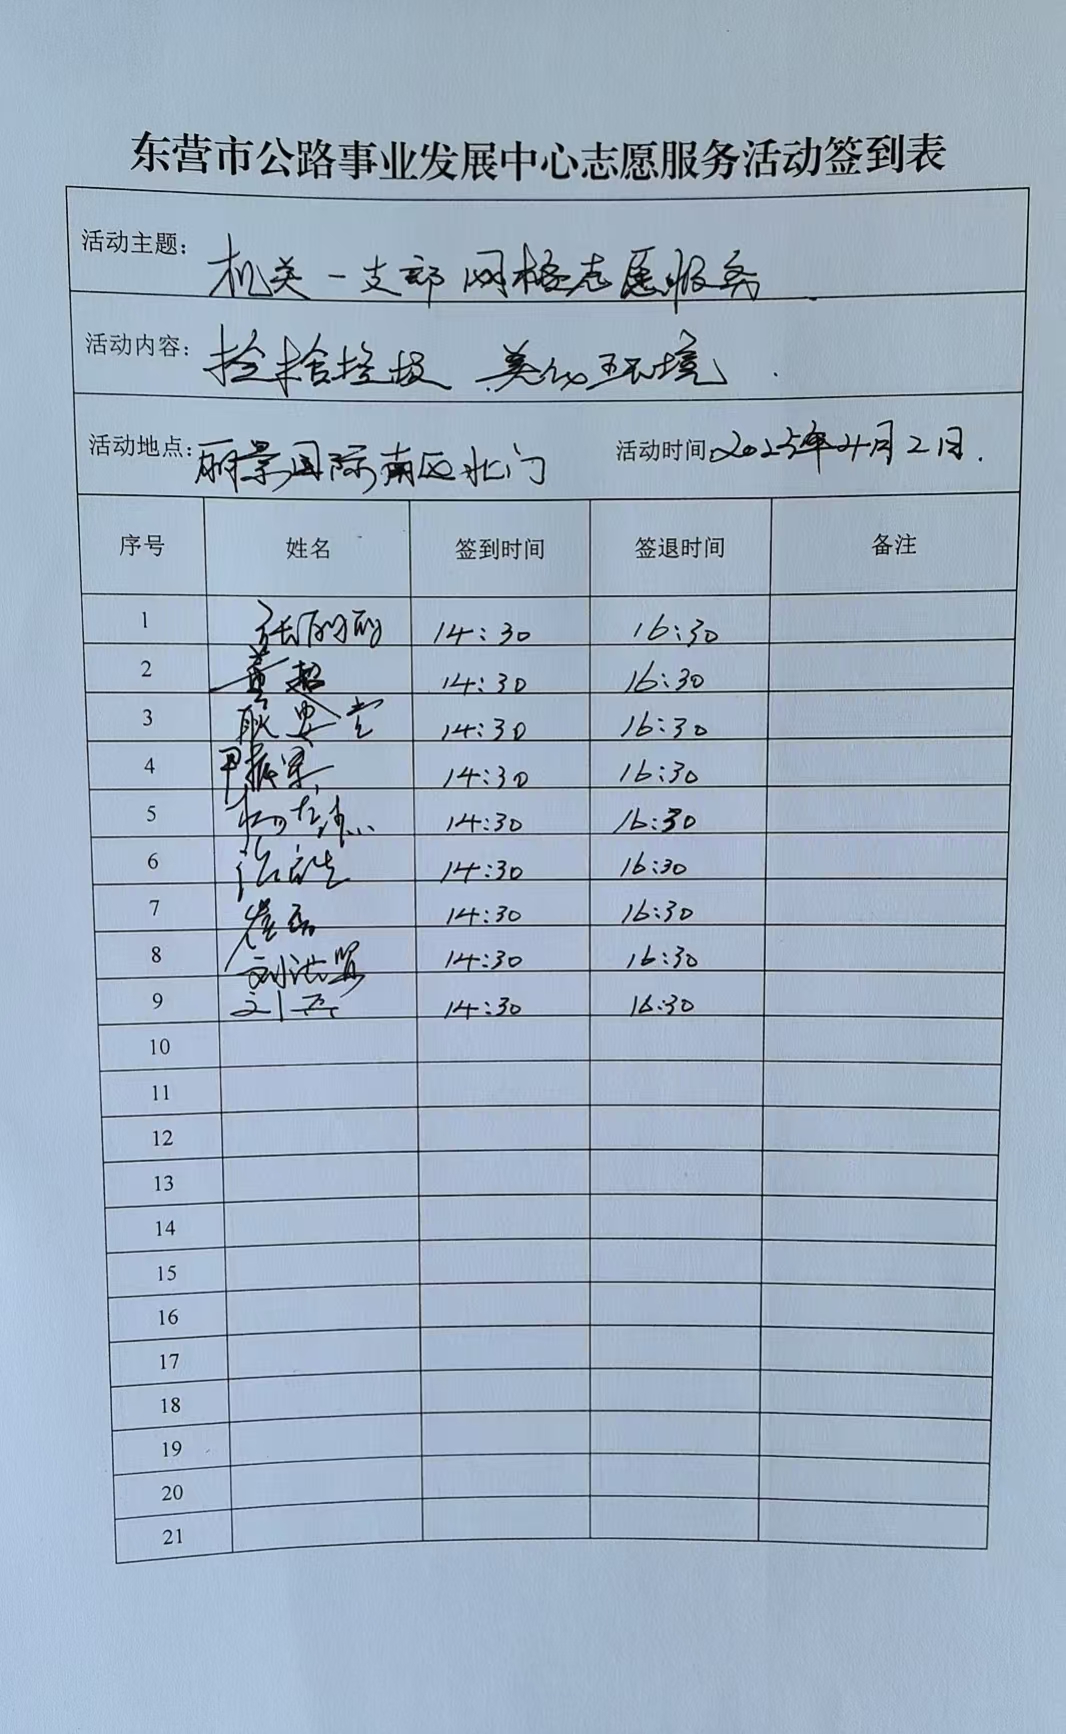 东营市公路事业发展中心志愿服务活动签到表
活动主题: 机关一支部 网格志愿服务
活动内容: 捡拾垃圾 美化环境.
活动地点: 丽景国际南区北门 活动时间: 2025年4月2日.
序号 姓名 签到时间 签退时间 备注
1 张丽丽 14:30 16:30
2 董超 14:30 16:30
3 14:30 16:30
4 14:30 16:30
5 14:30 16:30
6 14:30 16:30
7 崔磊 14:30 16:30
8 14:30 16:30
9 14:30 16:30
10
11
12
13
14
15
16
17
18
19
20
21